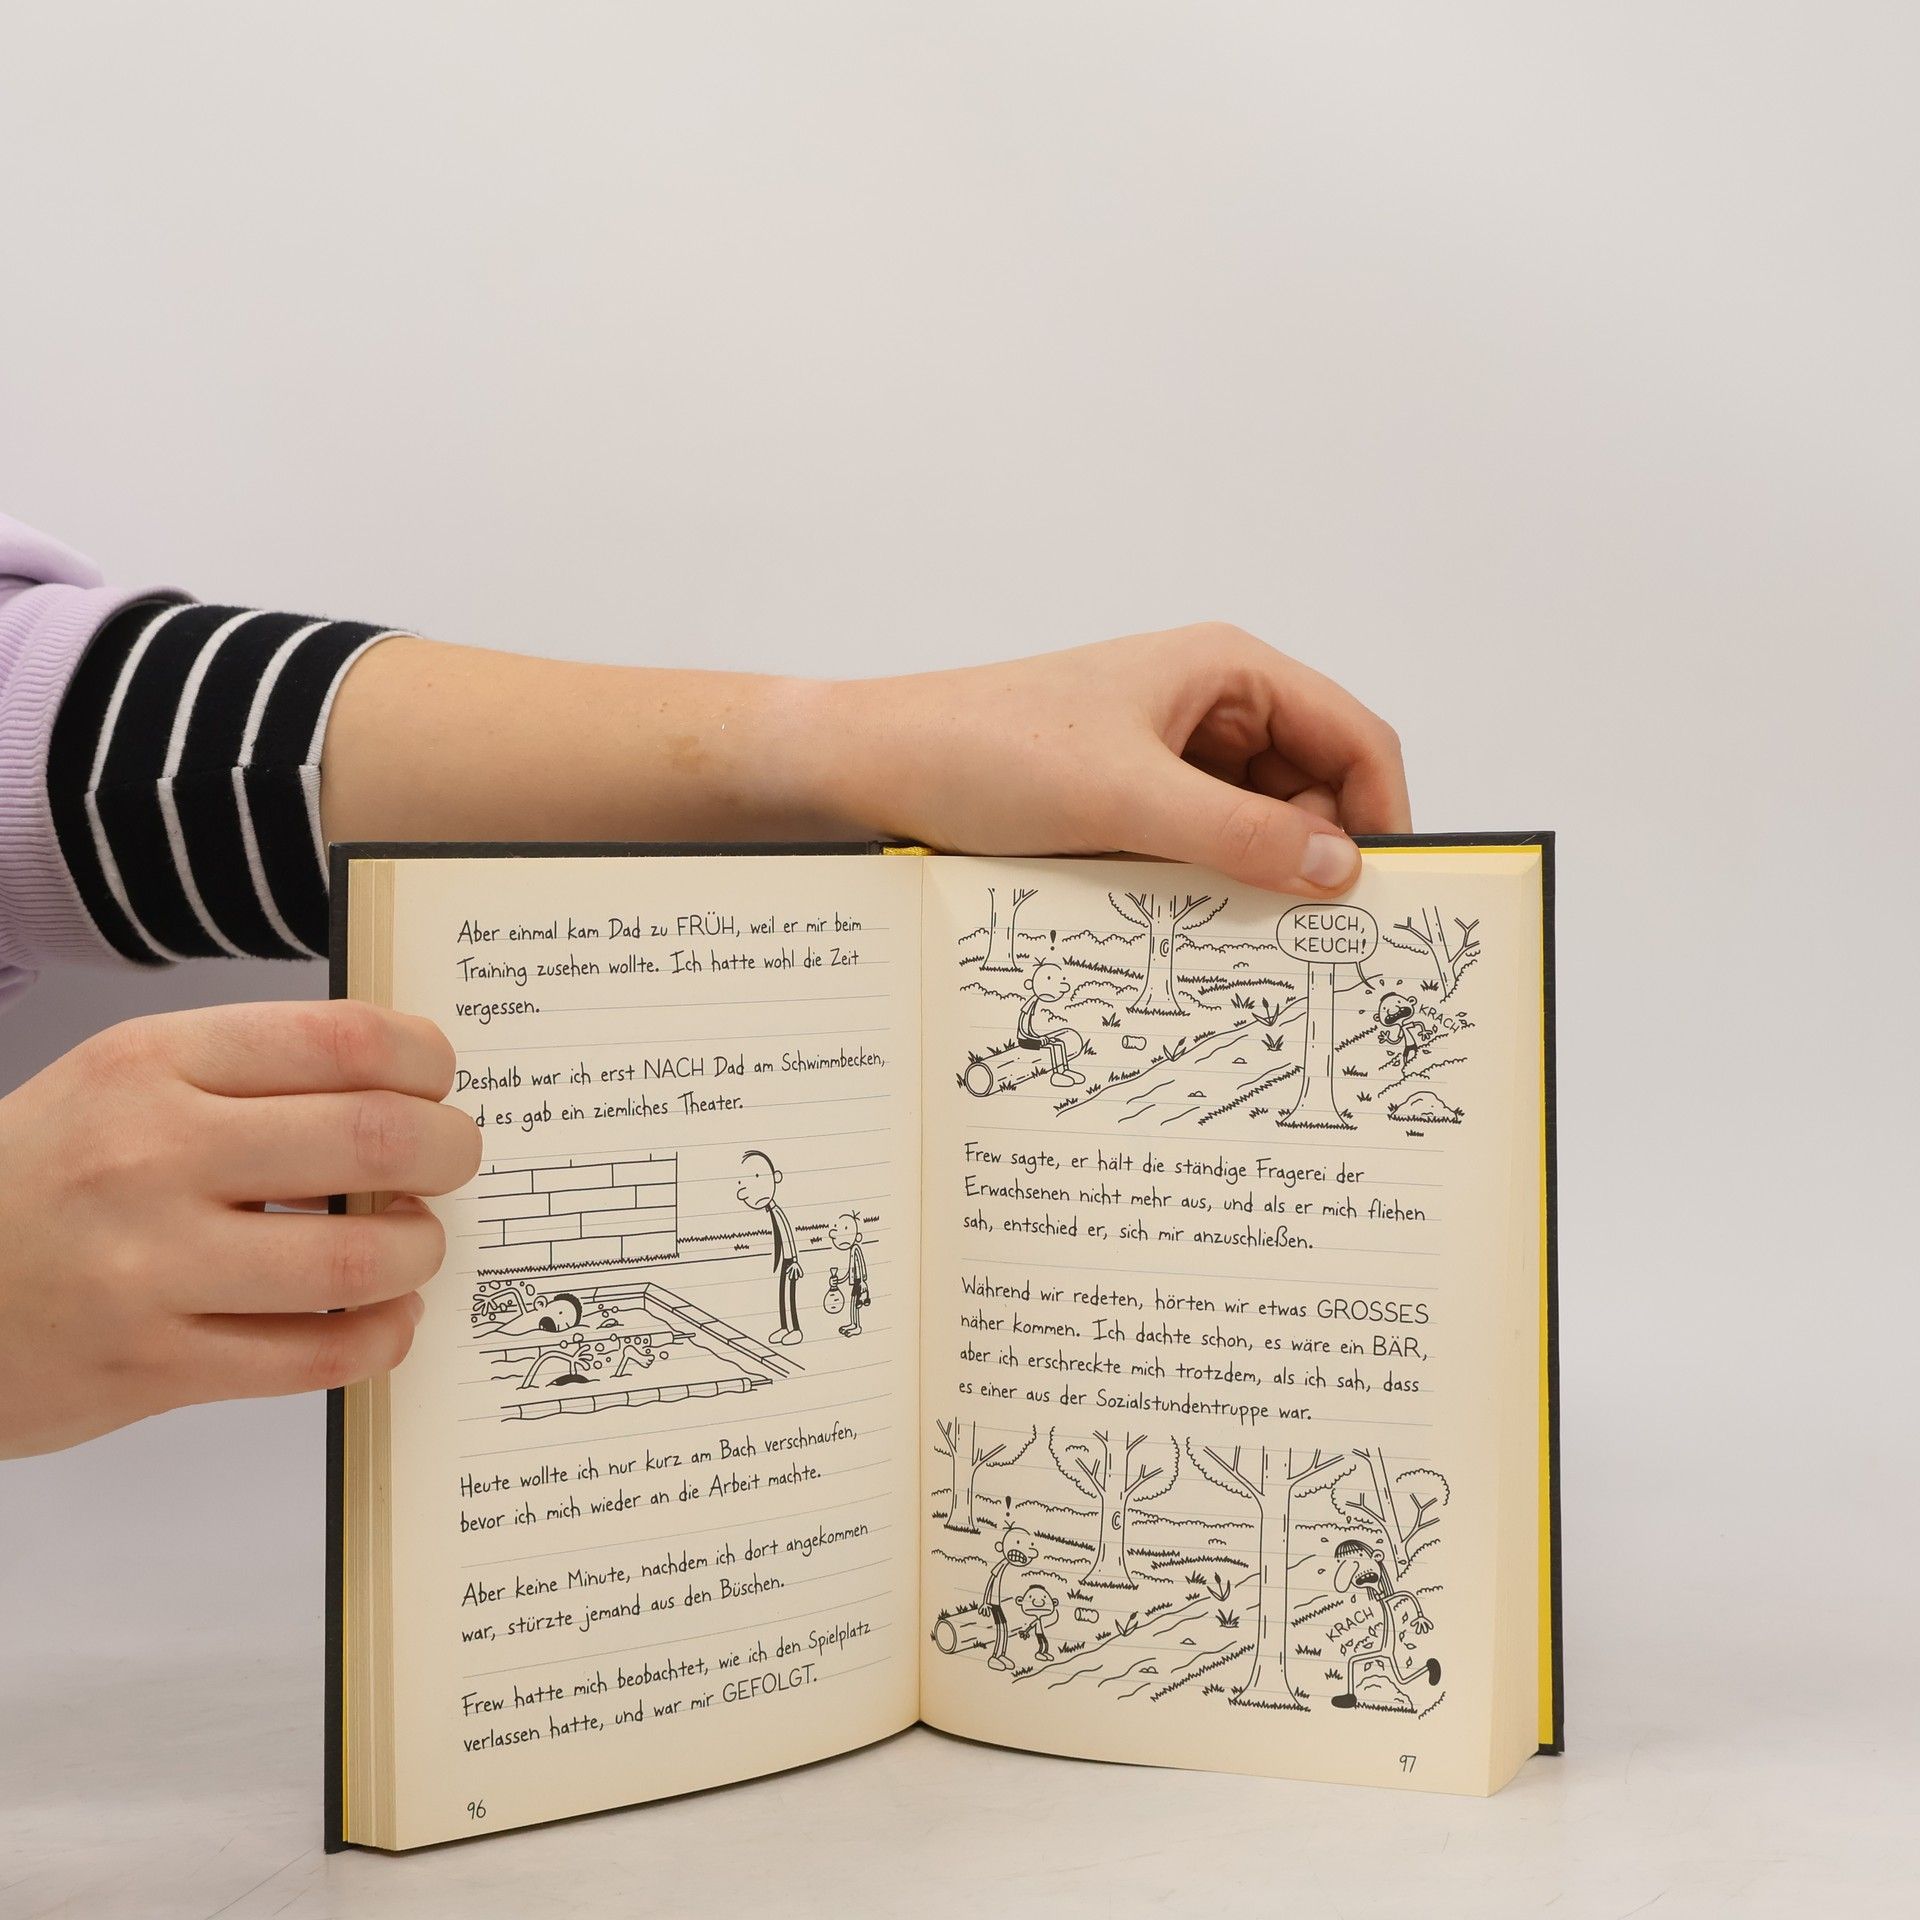 Aber einmal kam Dad zu FRÜH, weil er mir beim
Training zusehen wollte. Ich hatte wohl die Zeit
vergessen.
Deshalb war ich erst NACH Dad am Schwimmbecken,
d es gab ein ziemliches Theater.
Heute wollte ich nur kurz am Bach verschnaufen,
bevor ich mich wieder an die Arbeit machte.
Aber keine Minute, nachdem ich dort angekommen
war, stürzte jemand aus den Büschen.
Frew hatte mich beobachtet, wie ich den Spielplatz
verlassen hatte, und war mir GEFOLGT.
96
!
KEUCH,
KEUCH!
KRACH
Frew sagte, er hält die ständige Fragerei der
Erwachsenen nicht mehr aus, und als er mich fliehen
sah, entschied er, sich mir anzuschließen.
Während wir redeten, hörten wir etwas GROSSES
näher kommen. Ich dachte schon, es wäre ein BÄR,
aber ich erschreckte mich trotzdem, als ich sah, dass
es einer aus der Sozialstundentruppe war.
!
KRACH
97